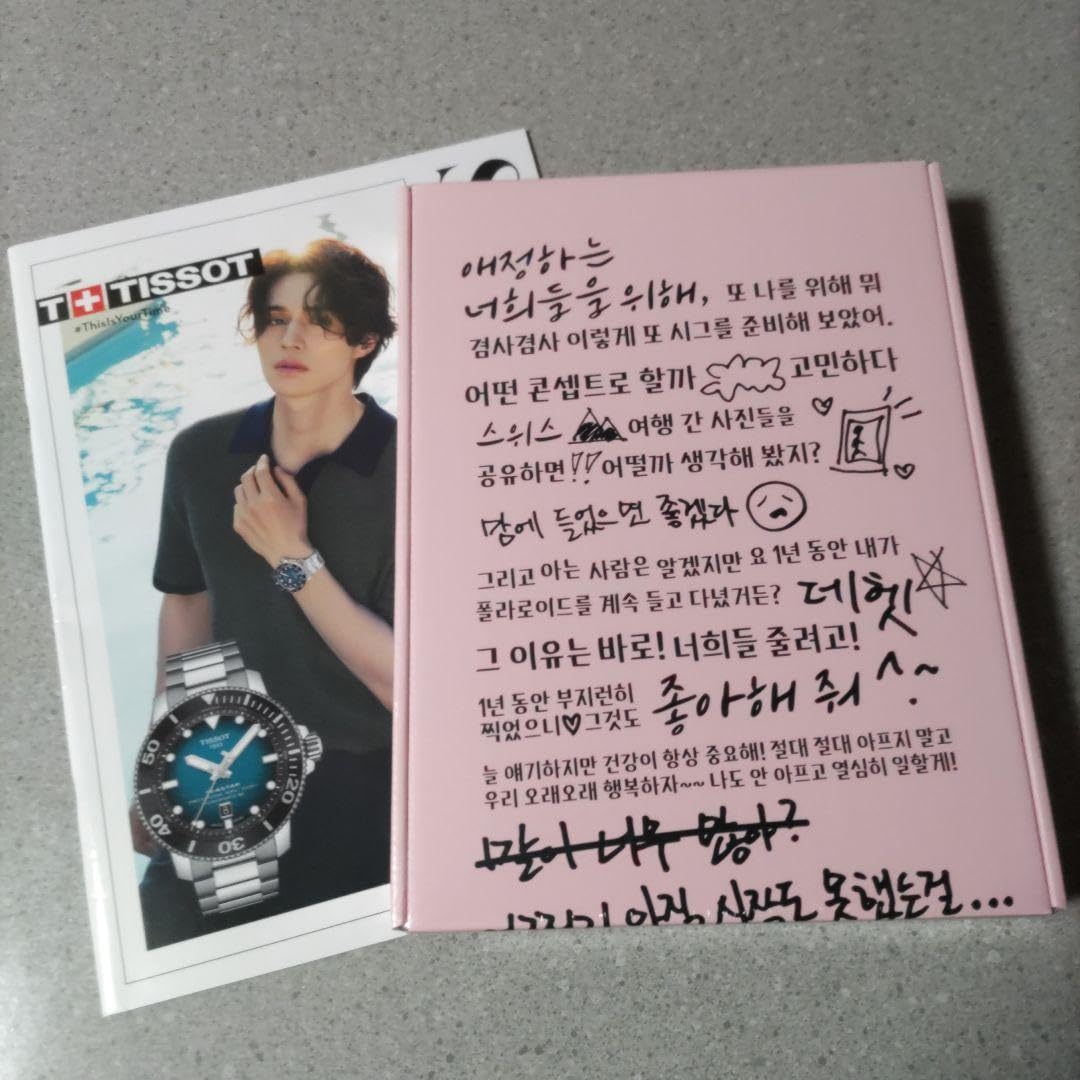 T+TISSOT
#ThisIsYourTime
TISSOT
1853
50
40
30
20
애정하는
너희들을 위해, 또 나를 위해 뭐
겸사겸사 이렇게 또 시그를 준비해 보았어.
어떤 콘셉트로 할까 고민하다
스위스 여행 간 사진들을
공유하면!! 어떨까 생각해 봤지?
맘에 들었으면 좋겠다
그리고 아는 사람은 알겠지만 요 1년 동안 내가
폴라로이드를 계속 들고 다녔거든? 데헷!
그 이유는 바로! 너희들 줄려고!
1년 동안 부지런히
찍었으니♡그것도 좋아해 줘^^~
늘 얘기하지만 건강이 항상 중요해! 절대 절대 아프지 말고
우리 오래오래 행복하자~~ 나도 안 아프고 열심히 일할게!
말이 너무 많아?
아직 시작도 못했는걸...